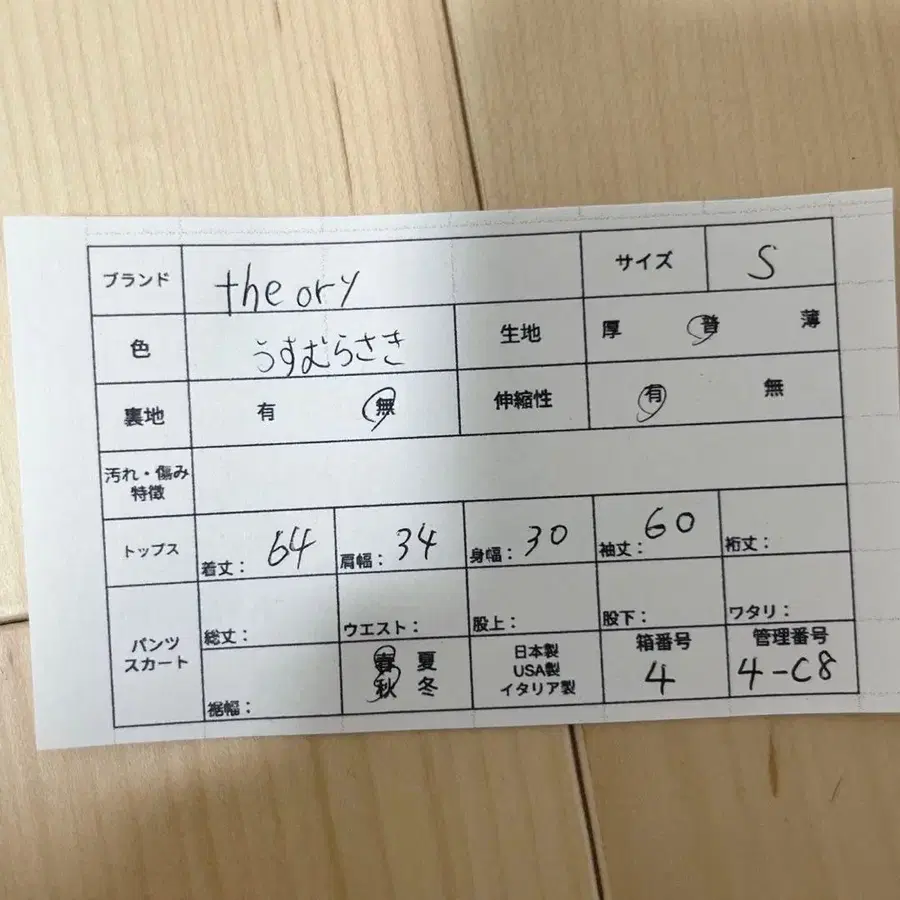 ブランド theory サイズ S
色 うすむらさき 生地 厚 普 薄
裏地 有 無 伸縮性 有 無
汚れ・傷み
特徴
トップス 着丈： 64 肩幅： 34 身幅： 30 袖丈： 60 裄丈：
パンツ
スカート
総丈： ウエスト： 股上： 股下： ワタリ：
裾幅：
春 夏
秋 冬
日本製
USA製
イタリア製
箱番号
4
管理番号
4-C8